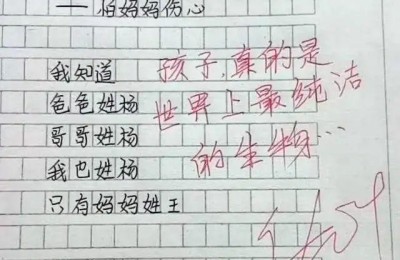 ——怕妈妈伤心
我知道
爸爸姓杨
哥哥姓杨
我也姓杨
只有妈妈姓王
孩子,真的是
世界上最纯洁
的生物…